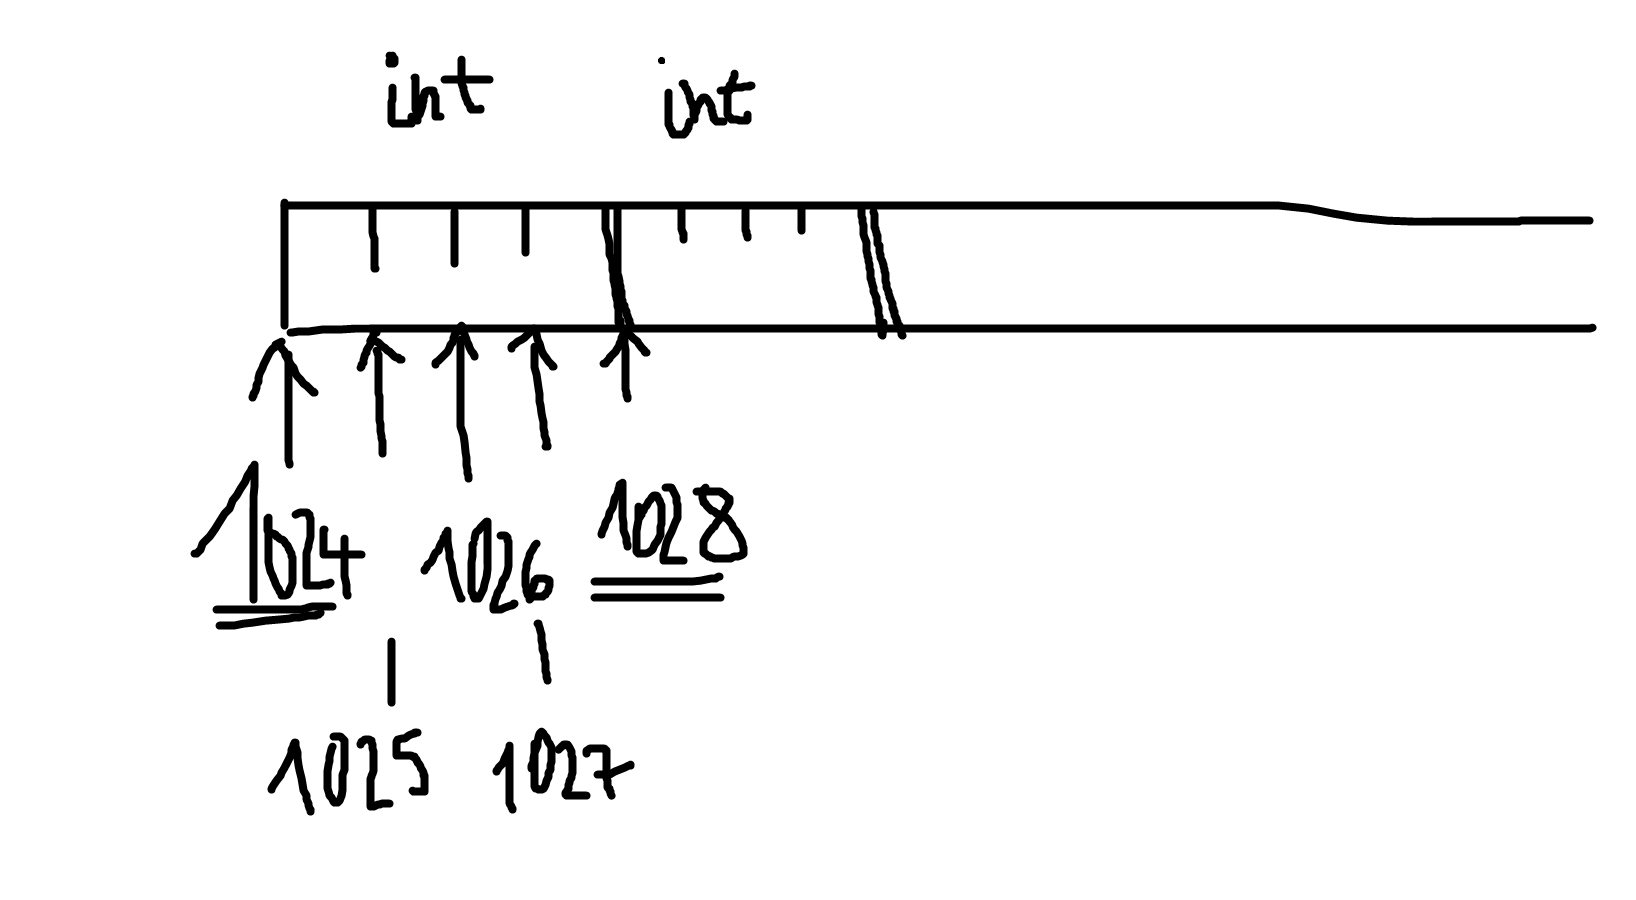 int int
1024 1026 1028
1025 1027